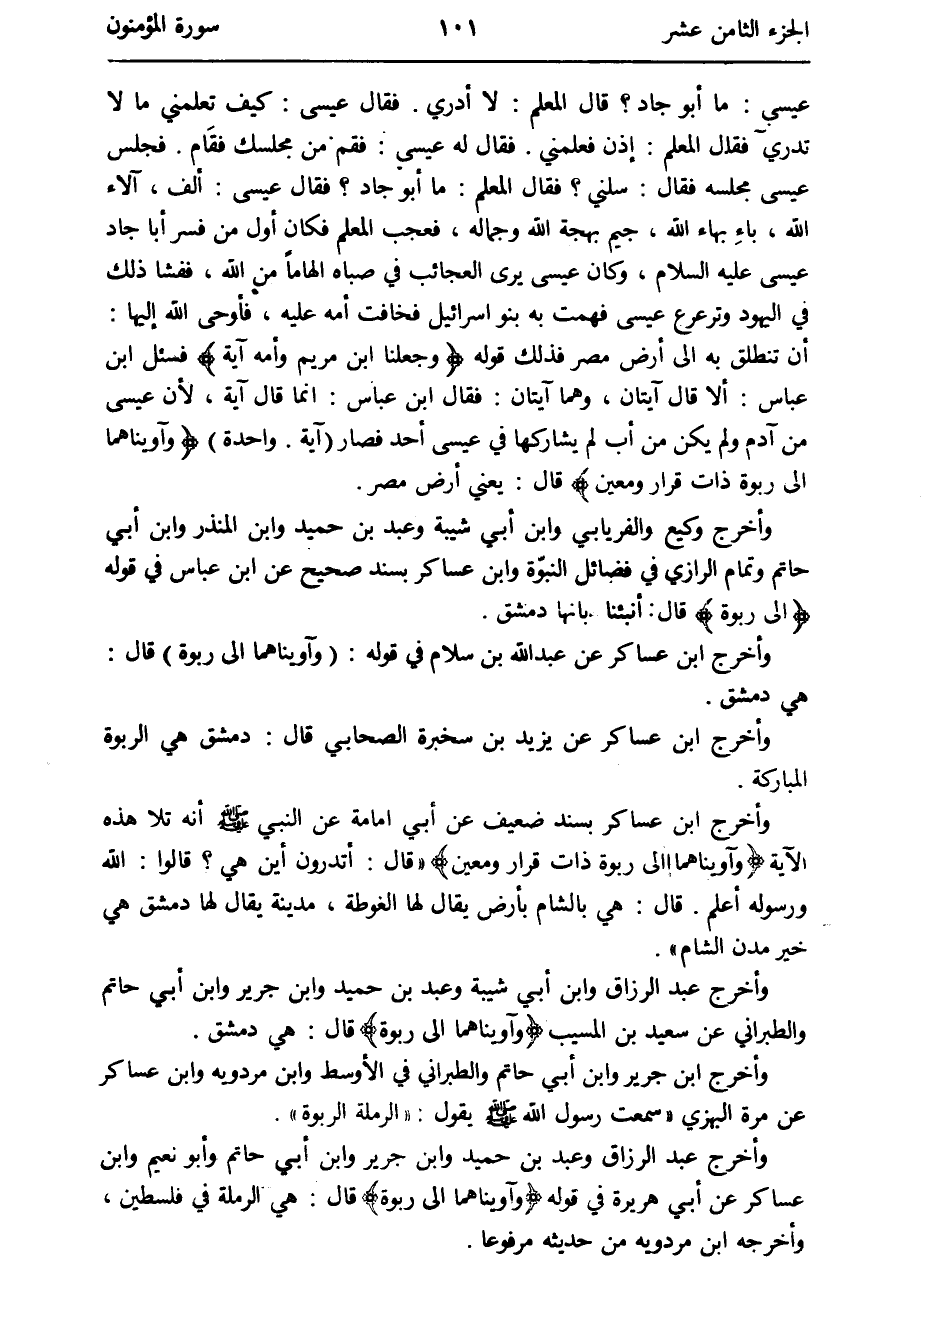 الجزء الثامن عشر ١٠١ سورة المؤمنون
عيسى : ما أبو جاد ؟ قال المعلم : لا أدري . فقال عيسى : كيف تعلمني ما لا
تدري فقال المعلم : إذن فعلمني . فقال له عيسى : فقم من مجلسك فقام . فجلس
عيسى مجلسه فقال : سلني ؟ فقال المعلم : ما أبو جاد ؟ فقال عيسى : ألف ، آلاء
الله ، باء بهاء الله ، جيم بهجة الله وجماله ، فعجب المعلم فكان أول من فسر أبا جاد
عيسى عليه السلام ، وكان عيسى يرى العجائب في صباه الهاماً من الله ، ففشا ذلك
في اليهود وترعرع عيسى فهمت به بنو اسرائيل فخافت أمه عليه ، فأوحى الله إليها :
أن تنطلق به الى أرض مصر فذلك قوله ﴿ وجعلنا ابن مريم وأمه آية ﴾ فسئل ابن
عباس : ألا قال آيتان ، وهما آيتان : فقال ابن عباس : انما قال آية ، لأن عيسى
من آدم ولم يكن من أب لم يشاركها في عيسى أحد فصار (آية . واحدة ) ﴿ وآويناهما
الى ربوة ذات قرار ومعين ﴾ قال : يعني أرض مصر .
وأخرج وكيع والفريابي وابن أبي شيبة وعبد بن حميد وابن المنذر وابن أبي
حاتم وتمام الرازي في فضائل النبوّة وابن عساكر بسند صحيح عن ابن عباس في قوله
﴿ الى ربوة ﴾ قال : أنبئنا بانها دمشق .
وأخرج ابن عساكر عن عبدالله بن سلام في قوله : ( وآويناهما الى ربوة ) قال :
هي دمشق .
وأخرج ابن عساكر عن يزيد بن سخبرة الصحابي قال : دمشق هي الربوة
المباركة .
وأخرج ابن عساكر بسند ضعيف عن أبي امامة عن النبي ﷺ أنه تلا هذه
الآية ﴿وآويناهما الى ربوة ذات قرار ومعين﴾ «قال : أتدرون أين هي ؟ قالوا : الله
ورسوله أعلم . قال : هي بالشام بأرض يقال لها الغوطة ، مدينة يقال لها دمشق هي
خير مدن الشام» .
وأخرج عبد الرزاق وابن أبي شيبة وعبد بن حميد وابن جرير وابن أبي حاتم
والطبراني عن سعيد بن المسيب ﴿وآويناهما الى ربوة﴾ قال : هي دمشق .
وأخرج ابن جرير وابن أبي حاتم والطبراني في الأوسط وابن مردويه وابن عساكر
عن مرة البهزي «سمعت رسول الله ﷺ يقول : «الرملة الربوة» .
وأخرج عبد الرزاق وعبد بن حميد وابن جرير وابن أبي حاتم وأبو نعيم وابن
عساكر عن أبي هريرة في قوله ﴿وآويناهما الى ربوة﴾ قال : هي الرملة في فلسطين ،
وأخرجه ابن مردويه من حديثه مرفوعا .